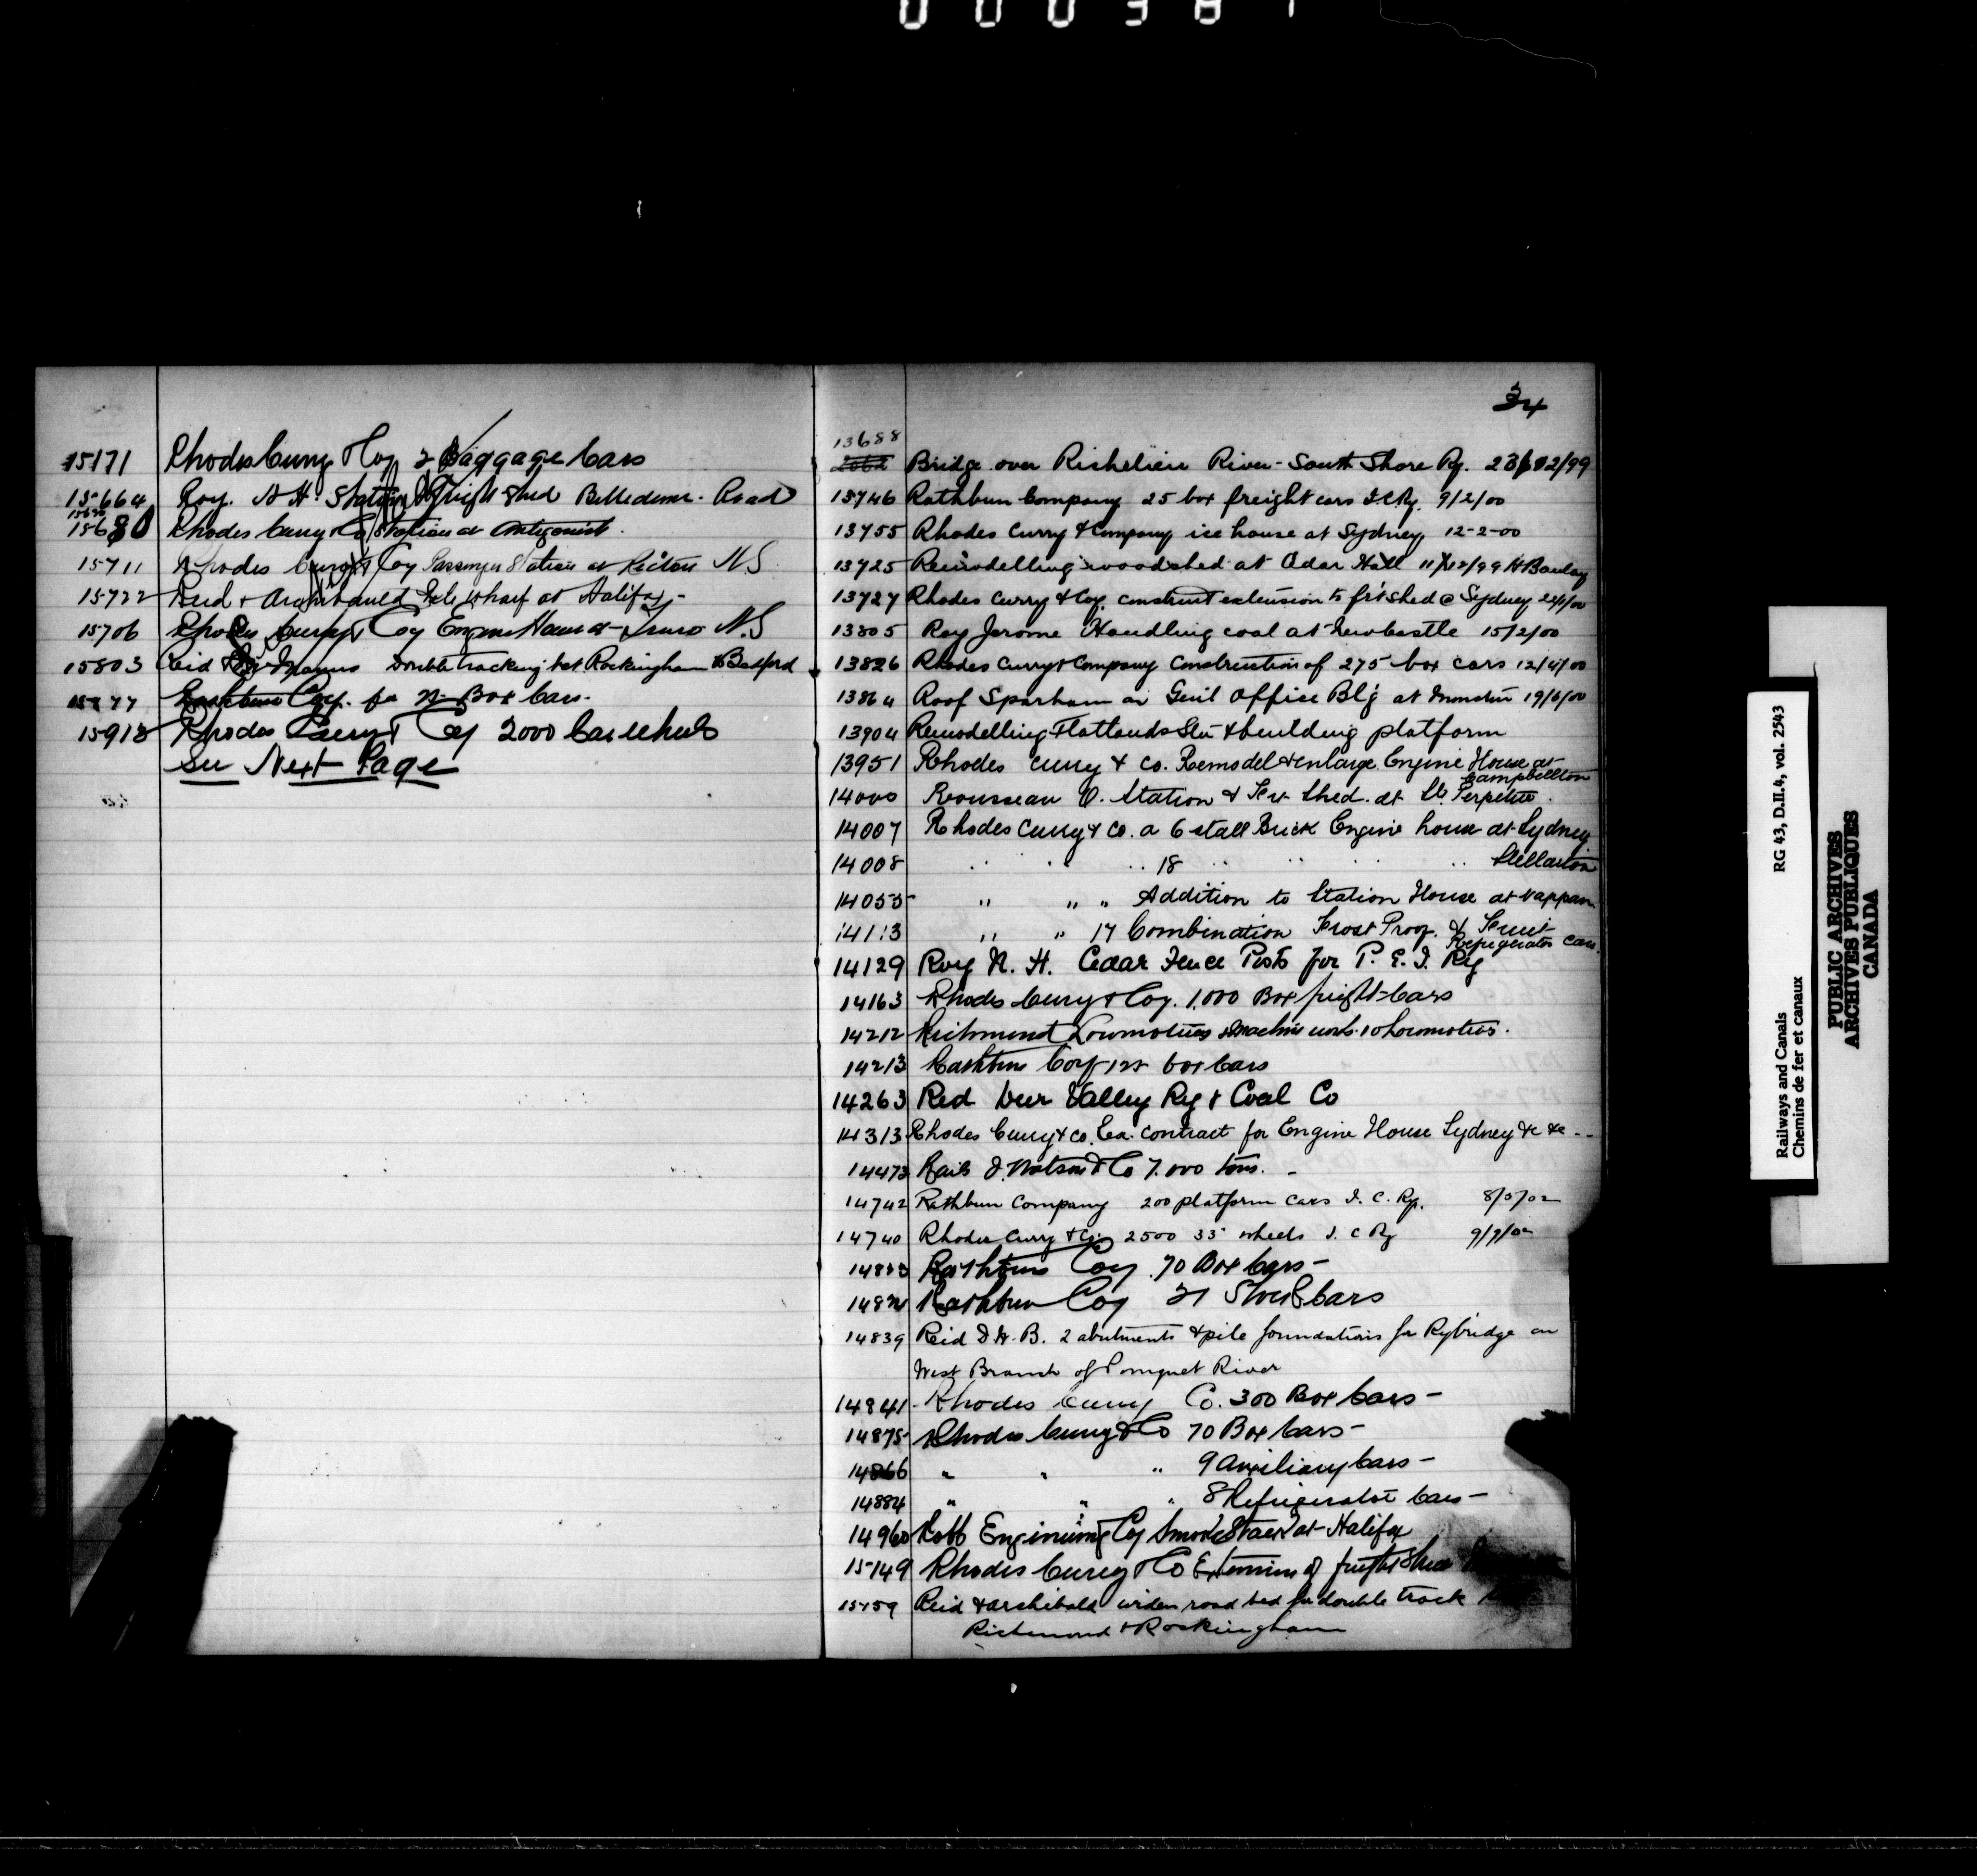 15171 Rhodes Curry & Coy 2 Baggage Cars
15664 Roy. N H. Station & Freight Shed Belledune Road
15680 Rhodes Curry & Co Station at Antigonish
15711 Rhodes Curry & Coy Passenger Station at Pictou N.S.
15722 Reid & Archibauld Pile Wharf at Halifax -
15706 Rhodes Curry & Coy Engine House at Truro N.S
15803 Reid & McManus Double tracking bet Rockingham & Bedford
Rathbun Coy. for Box Cars.
15918 Rhodes Curry & Coy 2000 Car wheels
See Next Page
34
13688
Bridge over Richelieu River - South Shore Ry. 23/12/99
13746 Rathbun Company 25 box freight cars I.C.Ry. 9/2/00
13755 Rhodes Curry & Company ice house at Sydney 12-2-00
13725 Remodelling woodshed at Cedar Hall 11/12/99 H Baulay
13727 Rhodes Curry & Coy. construct extension to frt shed @ Sydney
13805 Roy Jerome Handling coal at Newcastle 15/2/00
13826 Rhodes Curry & Company Construction of 275 box cars 12/4/00
13864 Roof Sparham on Genl Office Bl'g at Moncton 19/6/00
13904 Remodelling Flatlands Stn & building platform
13951 Rhodes Curry & Co. Remodel & enlarge Engine House at Campbellton
14000 Rousseau O. Station & Frt Shed. at St. Perpetue.
14007 Rhodes Curry & Co. a 6 stall Brick Engine house at Sydney
14008 " " " 18 " " " " Stellarton
14055 " " " Addition to Station House at Nappan
14113 " " 17 Combination Frost Proof & Fruit Refrigerator Cars.
14129 Roy N. H. Cedar Fence Posts for P. E. I. Ry
14163 Rhodes Curry & Coy. 1,000 Box freight Cars
14212 Richmond Locomotives & Machine works 10 Locomotives.
14213 Rathbun Coy 125 box Cars
14263 Red Deer Valley Ry & Coal Co
14313 Rhodes Curry & Co. Ex. contract for Engine House Sydney &c &c --
14473 Rails J. Watson & Co 7.000 tons. -
14742 Rathbun Company 200 platform cars I. C. Ry. 8/5/02
14740 Rhodes Curry & Co. 2500 33" wheels I. C Ry 9/9/02
Rathbun Coy 70 Box Cars -
Rathbun Coy 21 Stock Cars
14839 Reid D. W. B. 2 abutments & pile foundations for Ry bridge on
West Branch of Pomquet River
14841 Rhodes Curry Co. 300 Box Cars -
14875 Rhodes Curry & Co 70 Box Cars -
14866 " " " 9 Auxiliary Cars -
14884 " " " 8 Refrigerator Cars -
14960 Robb Engineering Coy Smoke Stack at Halifax
15149 Rhodes Curry & Co Extension of freight Shed
15159 Reid & Archibald widen road bed for double track
Richmond & Rockingham
Railways and Canals
Chemins de fer et canaux
RG 43, D.II.4, vol. 2543
PUBLIC ARCHIVES
ARCHIVES PUBLIQUES
CANADA